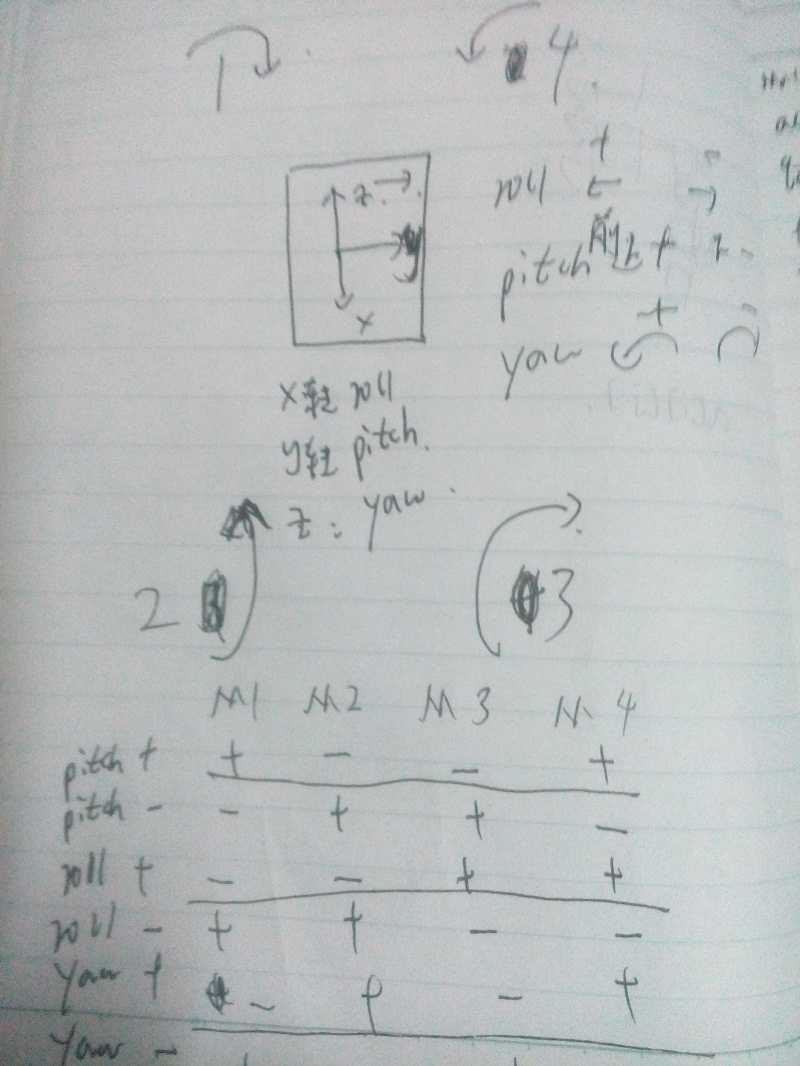 1 4
+
roll ← →
z →
pitch 前上 +
y
x
+
yaw
x轴 roll
y轴 pitch.
z: yaw.
2 3
M1 M2 M3 M4
pitch + + - - +
pitch - - + + -
roll + - - + +
roll - + + - -
yaw + - + - +
yaw - + +